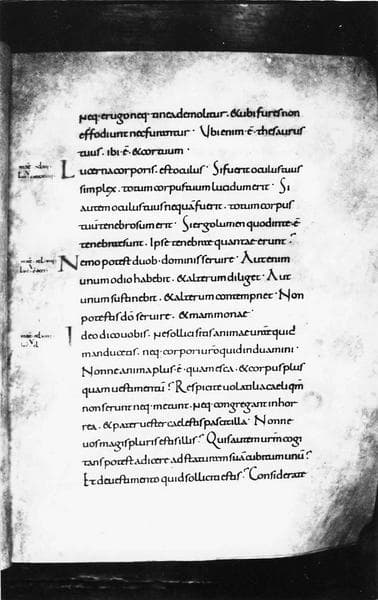 neq; erugo neq; tinea demolitur. & ubi fures non
effodiunt nec furantur. Ubi enim ē thesaurus
tuus. ibi ē & cor tuum.
Lucerna corporis. est oculus. Si fuerit oculus tuus
simplex. totum corpus tuum lucidum erit. Si
autem oculus tuus nequā fuerit. totum corpus
tuū tenebrosum erit. Si ergo lumen quod in te ē
tenebrae sunt. Ipse tenebrae quantae erunt?
Nemo potest duob; dominis servire. Aut enim
unum odio habebit. & alterum diliget. Aut
unum sustinebit. & alterum contempnet. Non
potestis dō servire. & mammonae.
Ideo dico vobis. ne solliciti sitis animae vrē quid
manducetis. neq; corpori vrō quid induamini.
Nonne anima plus ē. quam esca. & corpus plus
quam vestimentū? Respicite volatilia caeli qm̄
non serunt neq; metunt. Neq; congregant in hor
rea. & pater vester caelestis pascit illa. Nonne
vos magis pluris estis illis? Quis autem vrm̄ cogi
tans potest adicere ad staturam suā cubitum unū?
Et de vestimento quid solliciti estis? Considerate